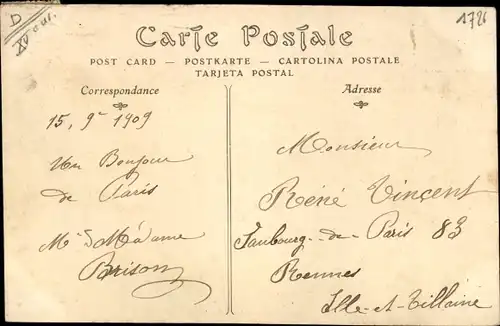 D
XV arr.
1726
Carte Postale
POST CARD — POSTKARTE — CARTOLINA POSTALE
TARJETA POSTAL
Correspondance
15, 9e 1909
Un Bonjour
de Paris
Mr & Madame
Brison
Adresse
Monsieur
Réné Vincent
Faubourg-de-Paris 83
Rennes
Ille-et-Villaine